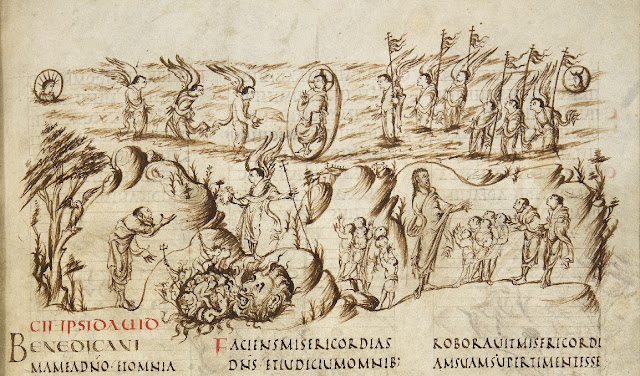 CII IPSI DAUID
BENEDIC ANI
MA MEA DNO · ET OMNIA
FACIENS MISERICORDIAS
DNS ET IUDICIUM OMNIB:
ROBORAUIT MISERICORDI
AM SUAM SUPER TIMENTES SE